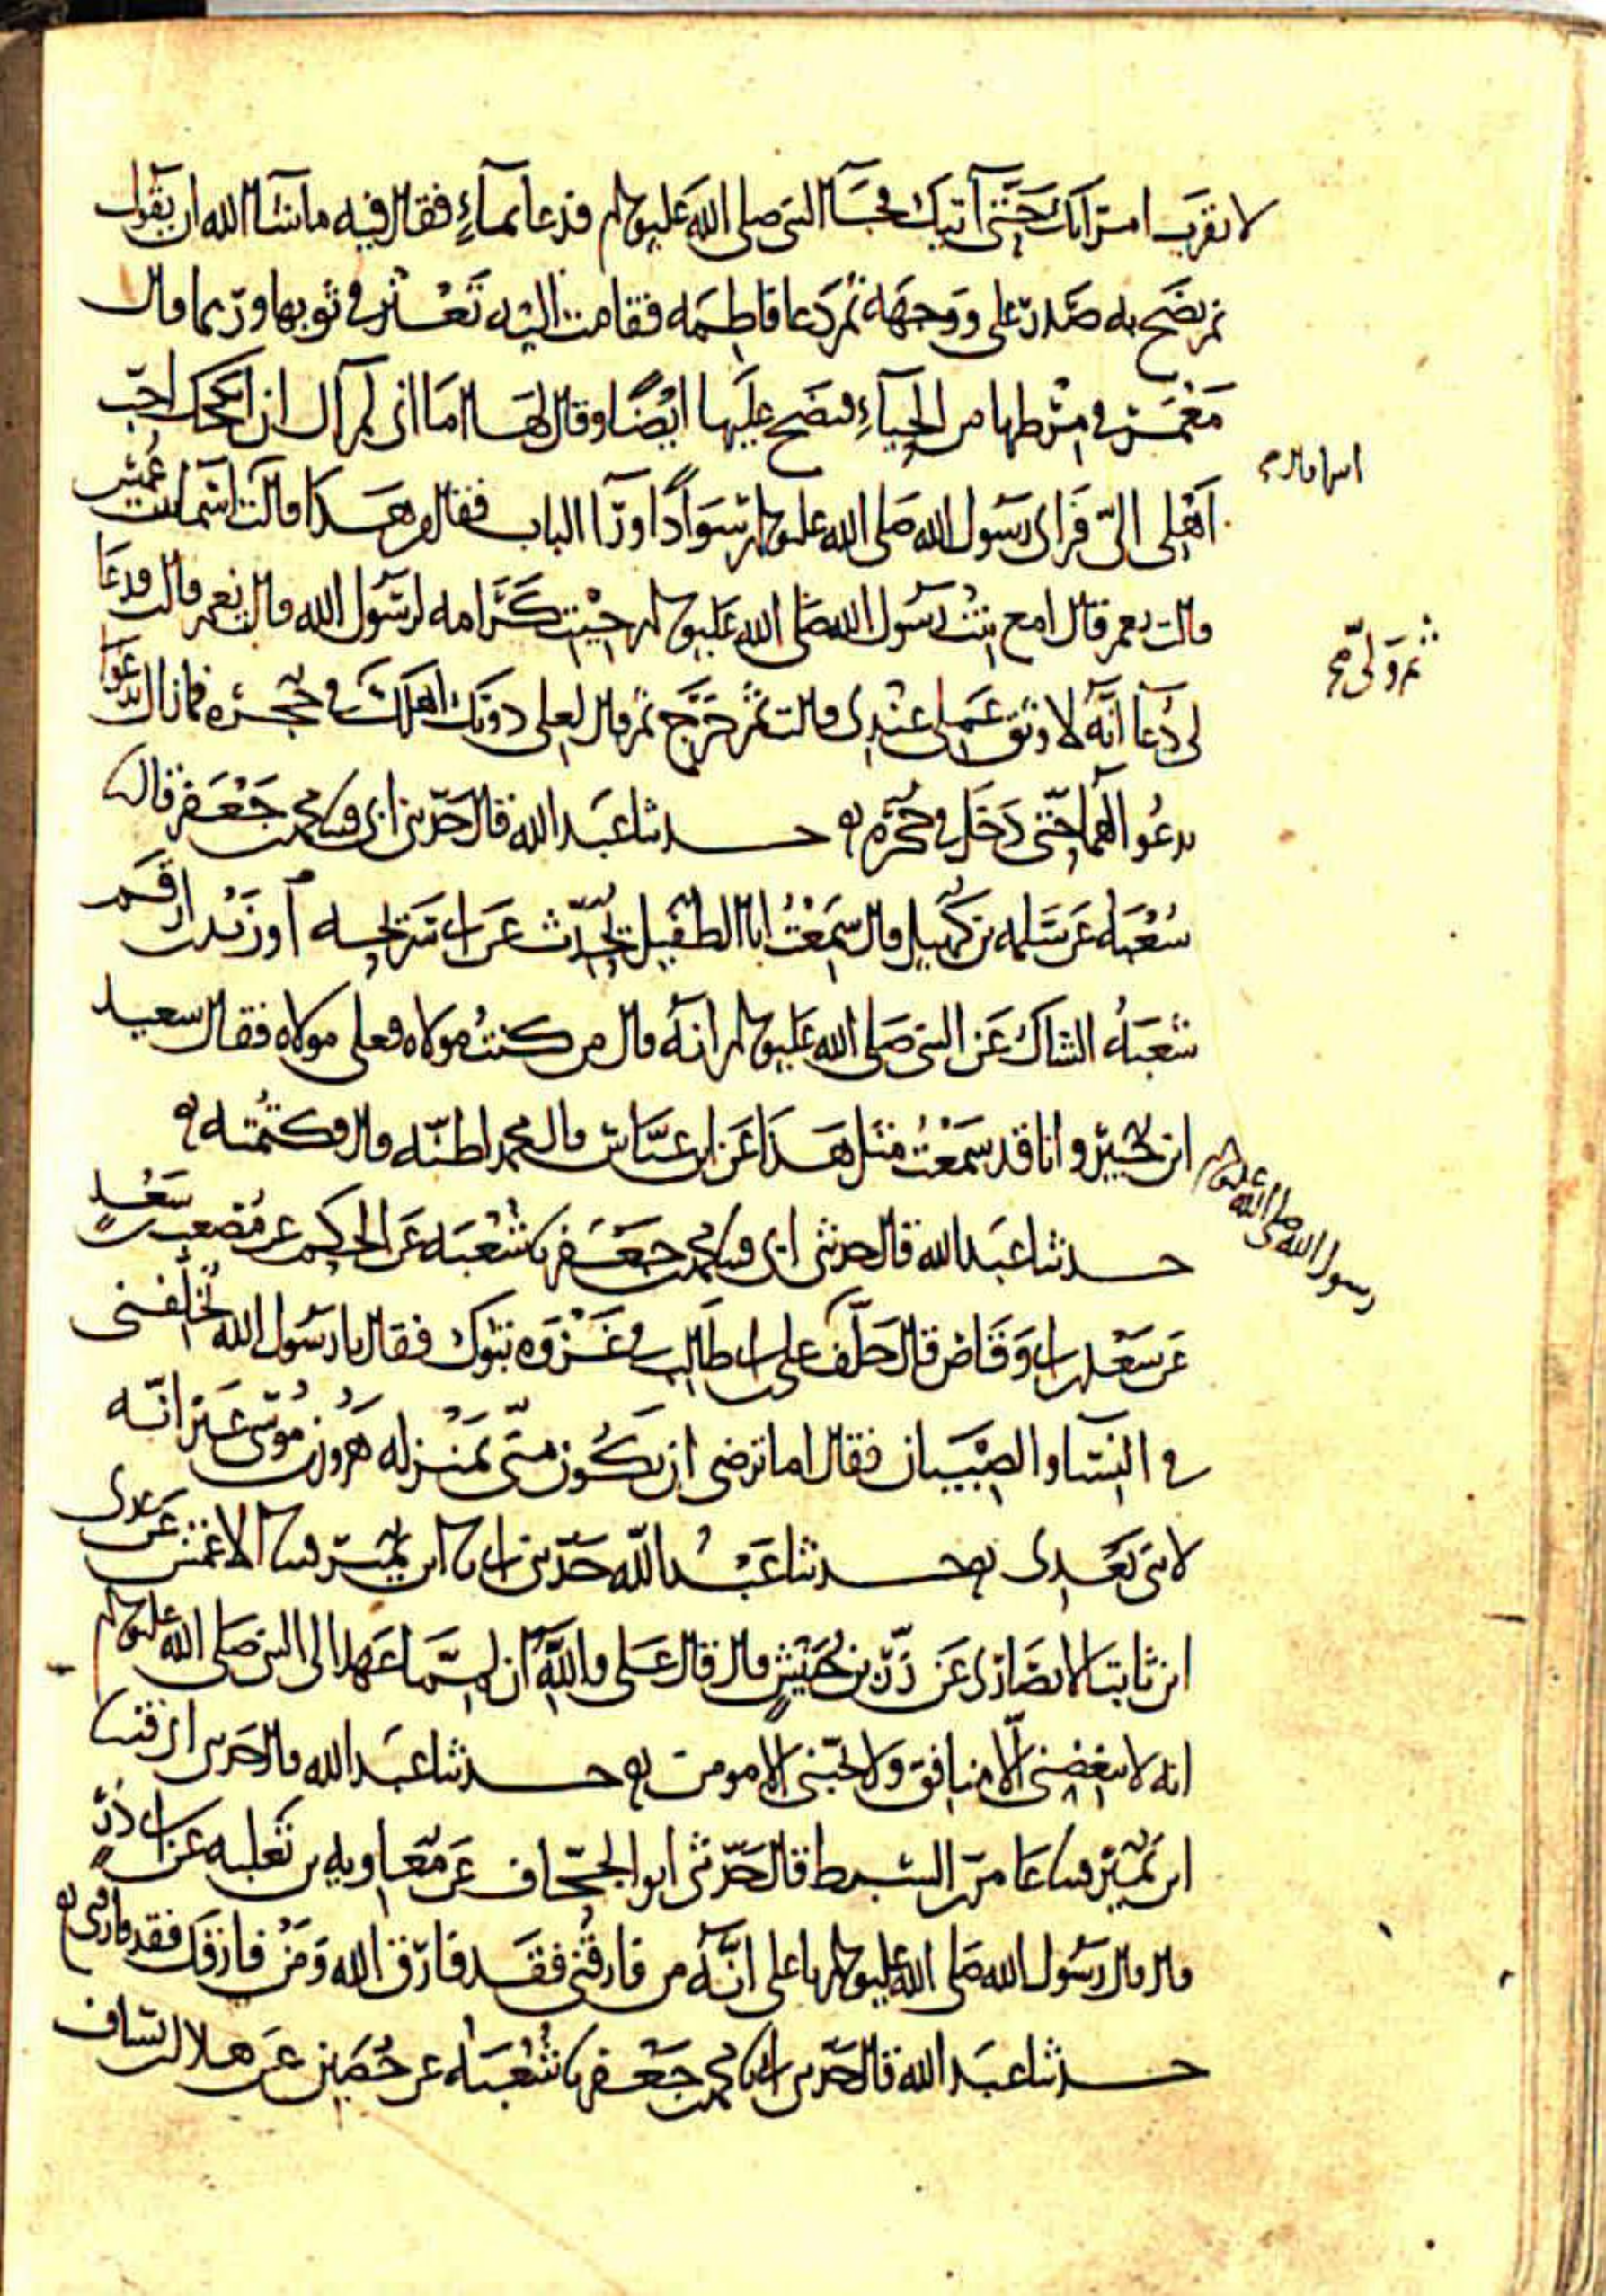 لا تقرب امرأتك حتى آتيك فجآ النبي صلى الله عليه وسلم فدعا بمآءٍ فقال فيه ما شآ الله ان يقول
ثم نضح به صدر علي ووجهه ثم دعا فاطمه فقامت اليه تعثر في ثوبها وربما قال
في مرطها من الحيآءِ فنضح عليها ايضًا وقال لها اما اني لم آل ان انكحك احب
اهلي الىّ فراى رسول الله صلى الله عليه وسلم سوادًا ورآ الباب فقال من هذا قالت اسما
اسما قال
بنت عميس
قالت نعم قال امع بنت رسول الله صلى الله عليه وسلم جيت كرامه لرسول الله قالت نعم قالت فدعا
لي دعآ انه لاوثق عملي عندي قالت ثم خرج ثم قال لعلي دونك اهلك في حجره فما زال يدعوا
ثم ولّى
يدعوا لهما حتى دخل في حجره حدثنا عبد الله قال حدثني ابي محمد بن جعفر قال
شعبه عن سلمه بن كهيل قال سمعت ابا الطفيل يحدث عن ابي سريحه او زيد بن ارقم
شعبهُ الشاك عن النبي صلى الله عليه وسلم انه قال من كنت مولاه فعلي مولاه فقال سعيد
ابن جبير وانا قد سمعت مثل هذا عن ابن عباس قال محمد اظنه قال وكتمته
حدثنا عبد الله قال حدثني ابي محمد بن جعفر نا شعبه عن الحكم عن مصعب بن سعد
رسول الله صلى الله عليه وسلم
عن سعد بن ابي وقاص قال خلّف علي بن ابي طالب في غزوه تبوك فقال يا رسول الله تخلفني
في النسا والصبيان فقال اما ترضى ان تكون منّي بمنزله هرون من موسى غير انّه
لا نبي بعدي حدثنا عبد الله حدثني ابي نا ابن نمير الاعمش عن عدي
ابن ثابت الانصاري عن زر بن حبيش قال قال علي والله انه لمما عهد الى النبي صلى الله عليه وسلم
انه لا يبغضني الّا منافق ولا يحبني الا مومن حدثنا عبد الله قال حدثني ابي
ابن نمير عامر بن السبط قال حدثني ابو الجحّاف عن معاويه بن ثعلبه عن ابي ذرّ
قال قال رسول الله صلى الله عليه وسلم يا علي انّه من فارقني فقد فارق الله ومن فارقك فقد فارقني
حدثنا عبد الله قال حدثني ابي نا محمد بن جعفر نا شعبه عن حصين عن هلال بن يساف